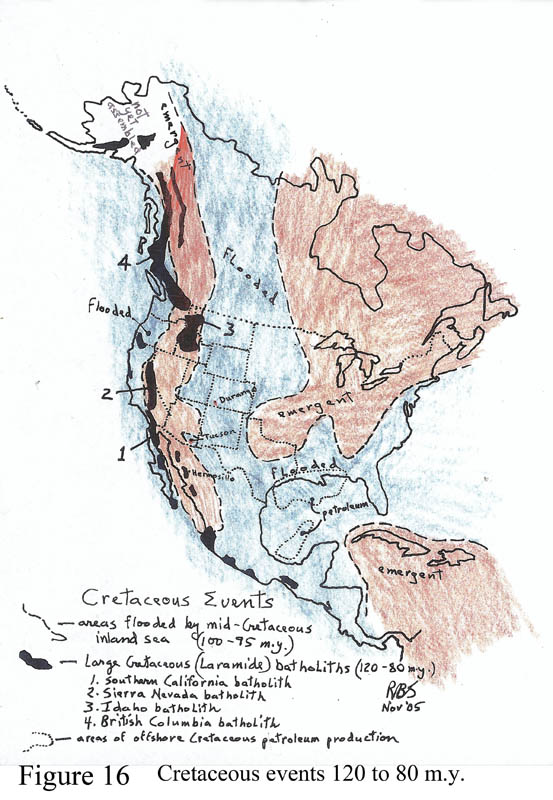 not
yet
assembled
emergent
4
Flooded
Flooded
3
2
Durango
emergent
1
Tucson
Hermosillo
flooded
petroleum
emergent
Cretaceous Events
areas flooded by mid-Cretaceous
inland sea (100-95 m.y.)
Large Cretaceous (Laramide) batholiths (120-80 m.y.)
1. southern California batholith
2. Sierra Nevada batholith
3. Idaho batholith
4. British Columbia batholith
RBS
Nov '05
areas of offshore Cretaceous petroleum production
Figure 16 Cretaceous events 120 to 80 m.y.